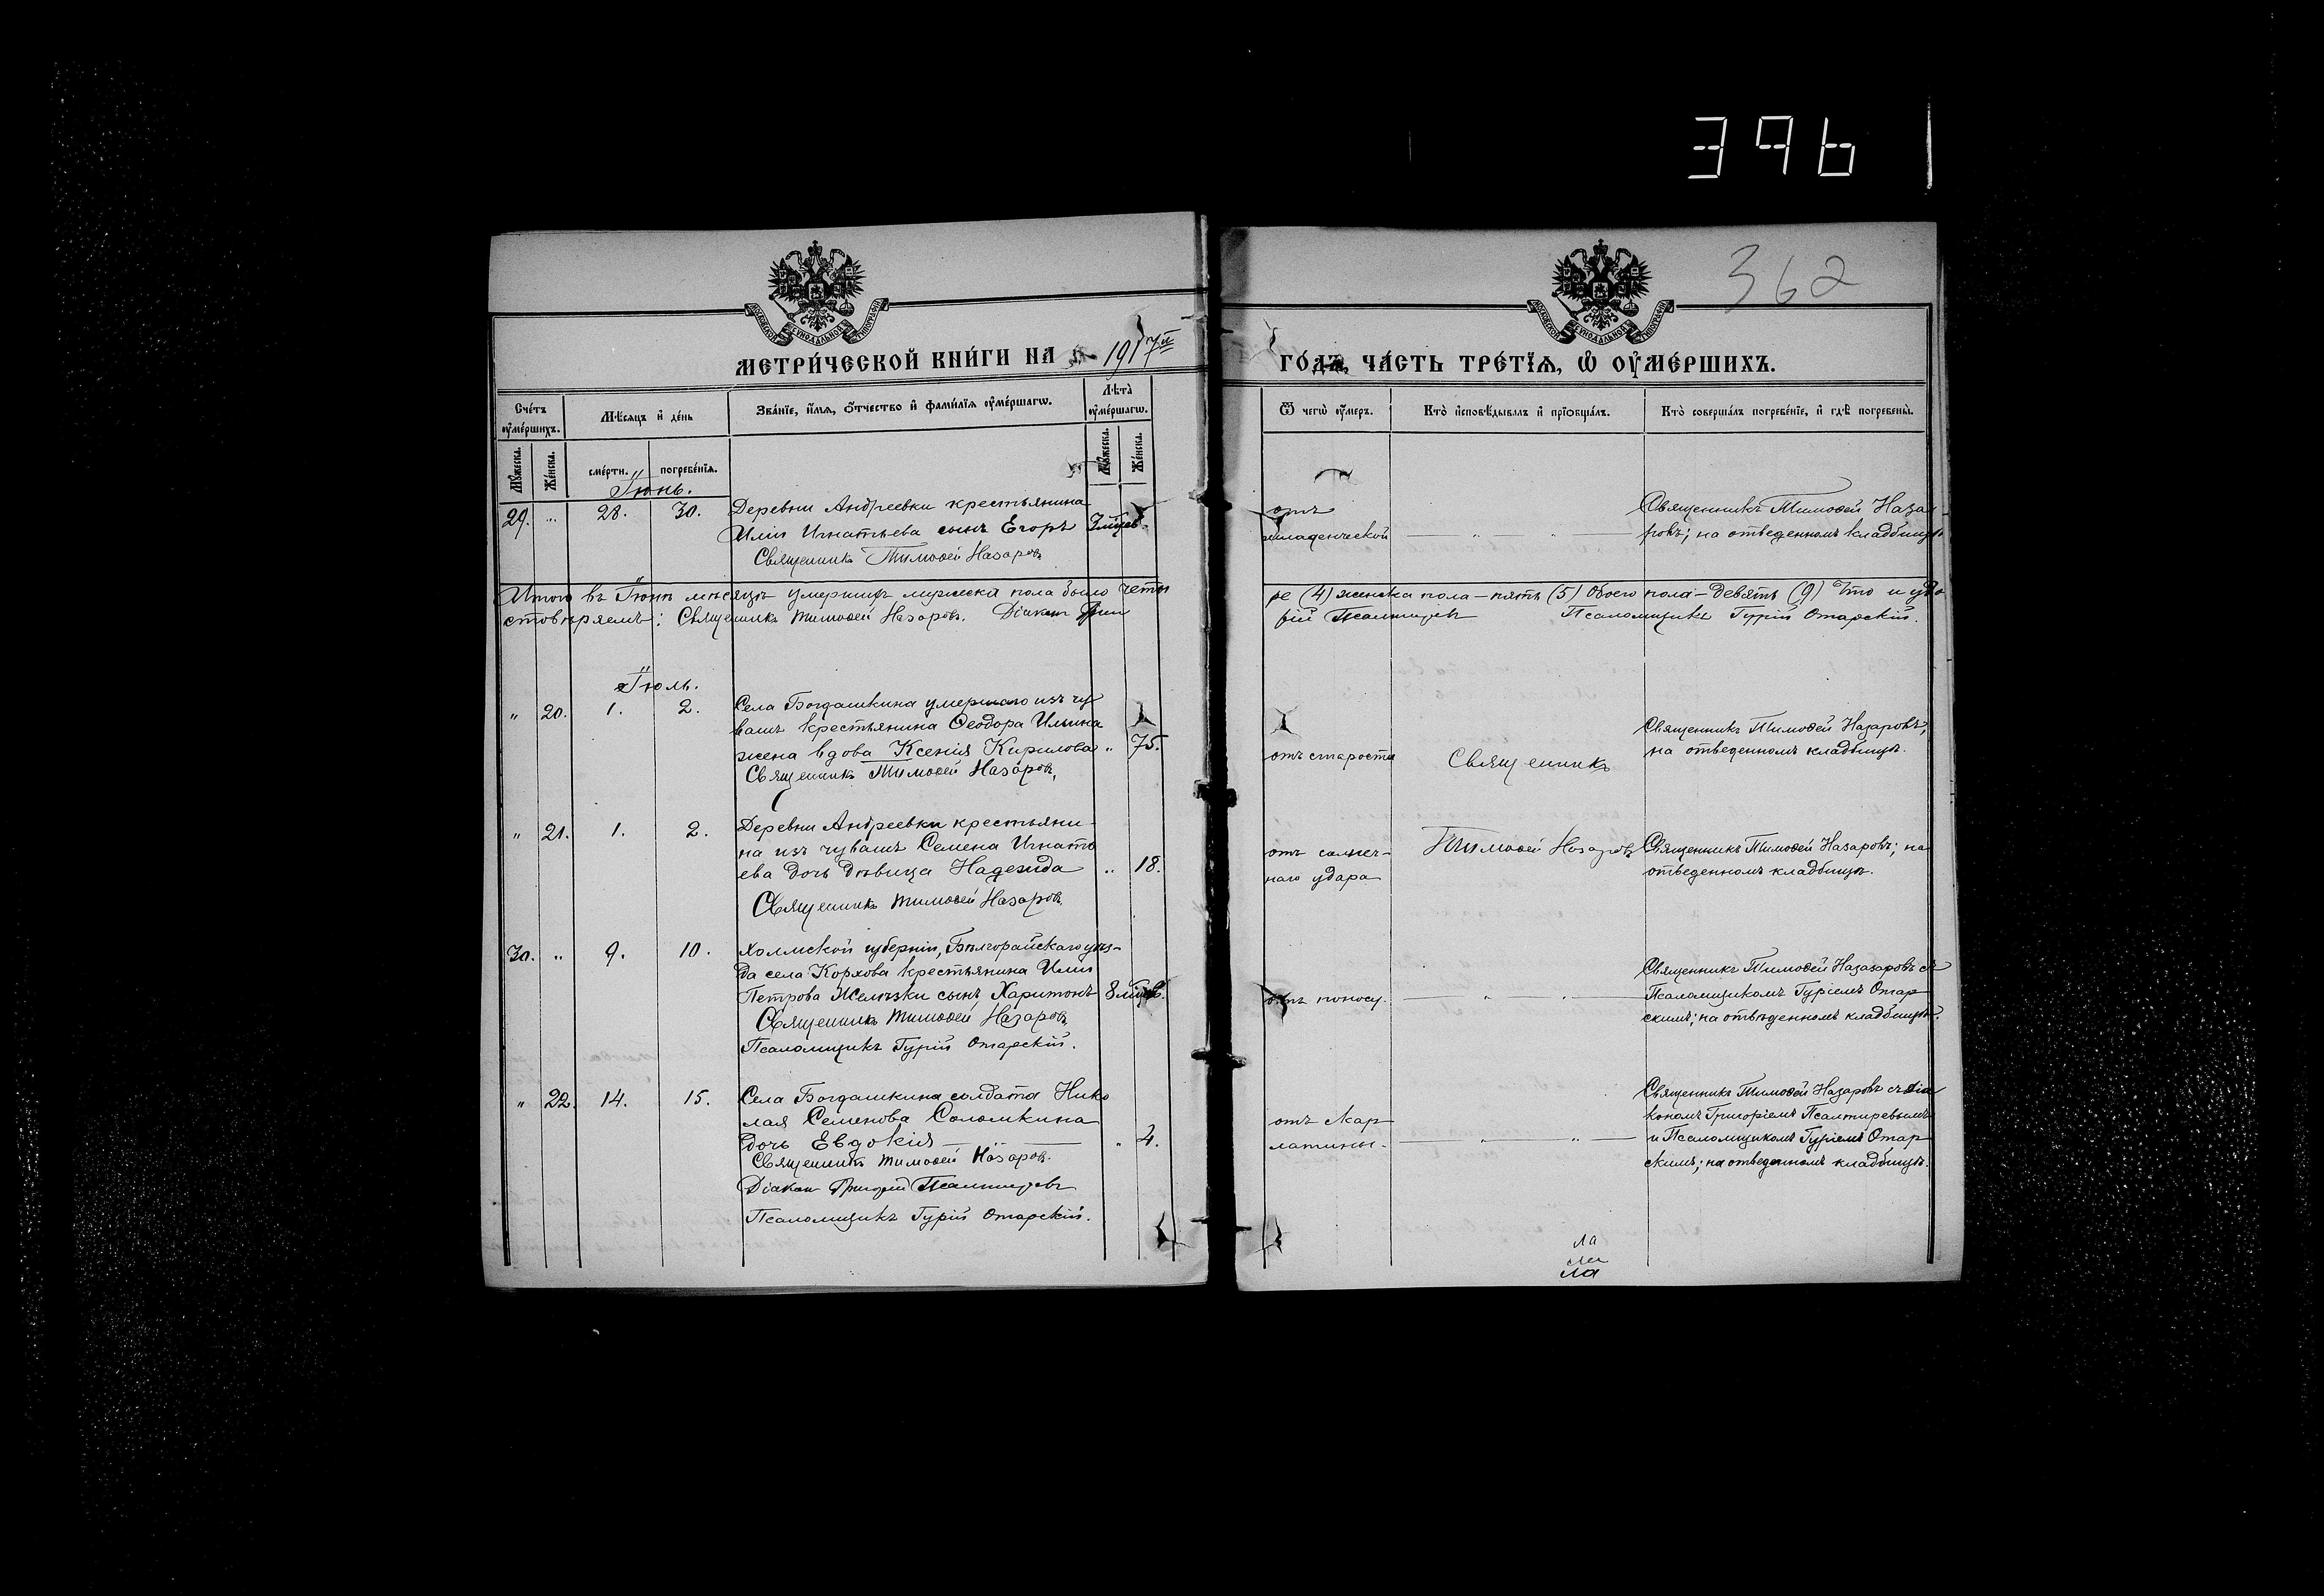 396
362
МОСКОВСКОЙ СѴНОДАЛЬНОЙ ТИПОГРАФІИ
МОСКОВСКОЙ СѴНОДАЛЬНОЙ ТИПОГРАФІИ
МЕТРИ́ЧЕСКОЙ КНИ́ГИ НА 1917й
ГО́ДЪ, ЧА́СТЬ ТРЕ́ТЇѦ, Ѡ҆ ОУ҆МЕ́РШИХЪ.
Сче́тъ оу҆ме́ршихъ.
Мꙋ́жеска.
Же́нска.
Мѣ́сѧцъ и҆ де́нь
сме́рти.
погребе́нїѧ.
Зва́нїе, и҆́мѧ, ѻ҆́тчество и҆ фами́лїѧ оу҆ме́ршагѡ.
Лѣ́та оу҆ме́ршагѡ.
Мꙋ́жеска.
Же́нска.
Ѿ чегѡ̀ оу҆́меръ.
Кто̀ и҆сповѣ́дывалъ и҆ прїѡбща́лъ.
Кто̀ соверша́лъ погребе́нїе, и҆ гдѣ̀ погребены̀.
Іюнь.
29. " 28. 30.
Деревни Андреевки крестьянина
Иліи Игнатьева сынъ Егоръ
Священникъ Тимофей Назаровъ
отъ
младенческой
Священникъ Тимоѳей Наза
ровъ; на отведенномъ кладбищѣ
Итого въ Іюнѣ мѣсяцѣ умершихъ мужска пола было четы
ре (4) женска пола – пять (5) Обоего пола – девять (9) Что и удо
стовѣряемъ: Священникъ Тимоѳей Назаровъ. Діаконъ Григо
рій Псалтиревъ Псаломщикъ Гурій Отарскій.
Іюль.
" 20. 1. 2.
Села Богдашкина умершаго изъ чу
вашъ крестьянина Ѳеодора Ильина
жена вдова Ксенія Кирилова " 75.
Священникъ Тимоѳей Назаровъ,
отъ старости
Священникъ
Священникъ Тимоѳей Назаровъ;
на отведенномъ кладбищѣ.
" 21. 1. 2.
Деревни Андреевки крестьяни-
на изъ чувашъ Семена Игнать
ева дочь дѣвица Надежда " 18.
Священникъ Тимоѳей Назаровъ
отъ солнеч-
наго удара
Тимоѳей Назаровъ
Священникъ Тимоѳей Назаровъ; на
отведенномъ кладбищѣ.
30. " 9. 10.
Холмской губерніи, Бѣлгорайскаго уѣз-
да села Корхова крестьянина Иліи
Петрова Желѣзки сынъ Харитонъ 8 мѣсяцев.
Священникъ Тимоѳей Назаровъ
Псаломщикъ Гурій Отарскій.
отъ поносу.
Священникъ Тимоѳей Назазаровъ съ
Псаломщикомъ Гуріемъ Отар
скимъ; на отведенномъ кладбищѣ.
" 22. 14. 15.
Села Богдашкина солдата Нико
лая Семенова Соломкина
дочь Евдокія " 4.
Священникъ Тимоѳей Назаровъ.
Діаконъ Григорій Псалтиревъ
Псаломщикъ Гурій Отарскій.
отъ скар
латины.
Священникъ Тимоѳей Назаровъ съ діа
кономъ Григоріемъ Псалтиревымъ
и Псаломщикомъ Гуріемъ Отар
скимъ; на отведенномъ кладбищѣ.
ла
ла